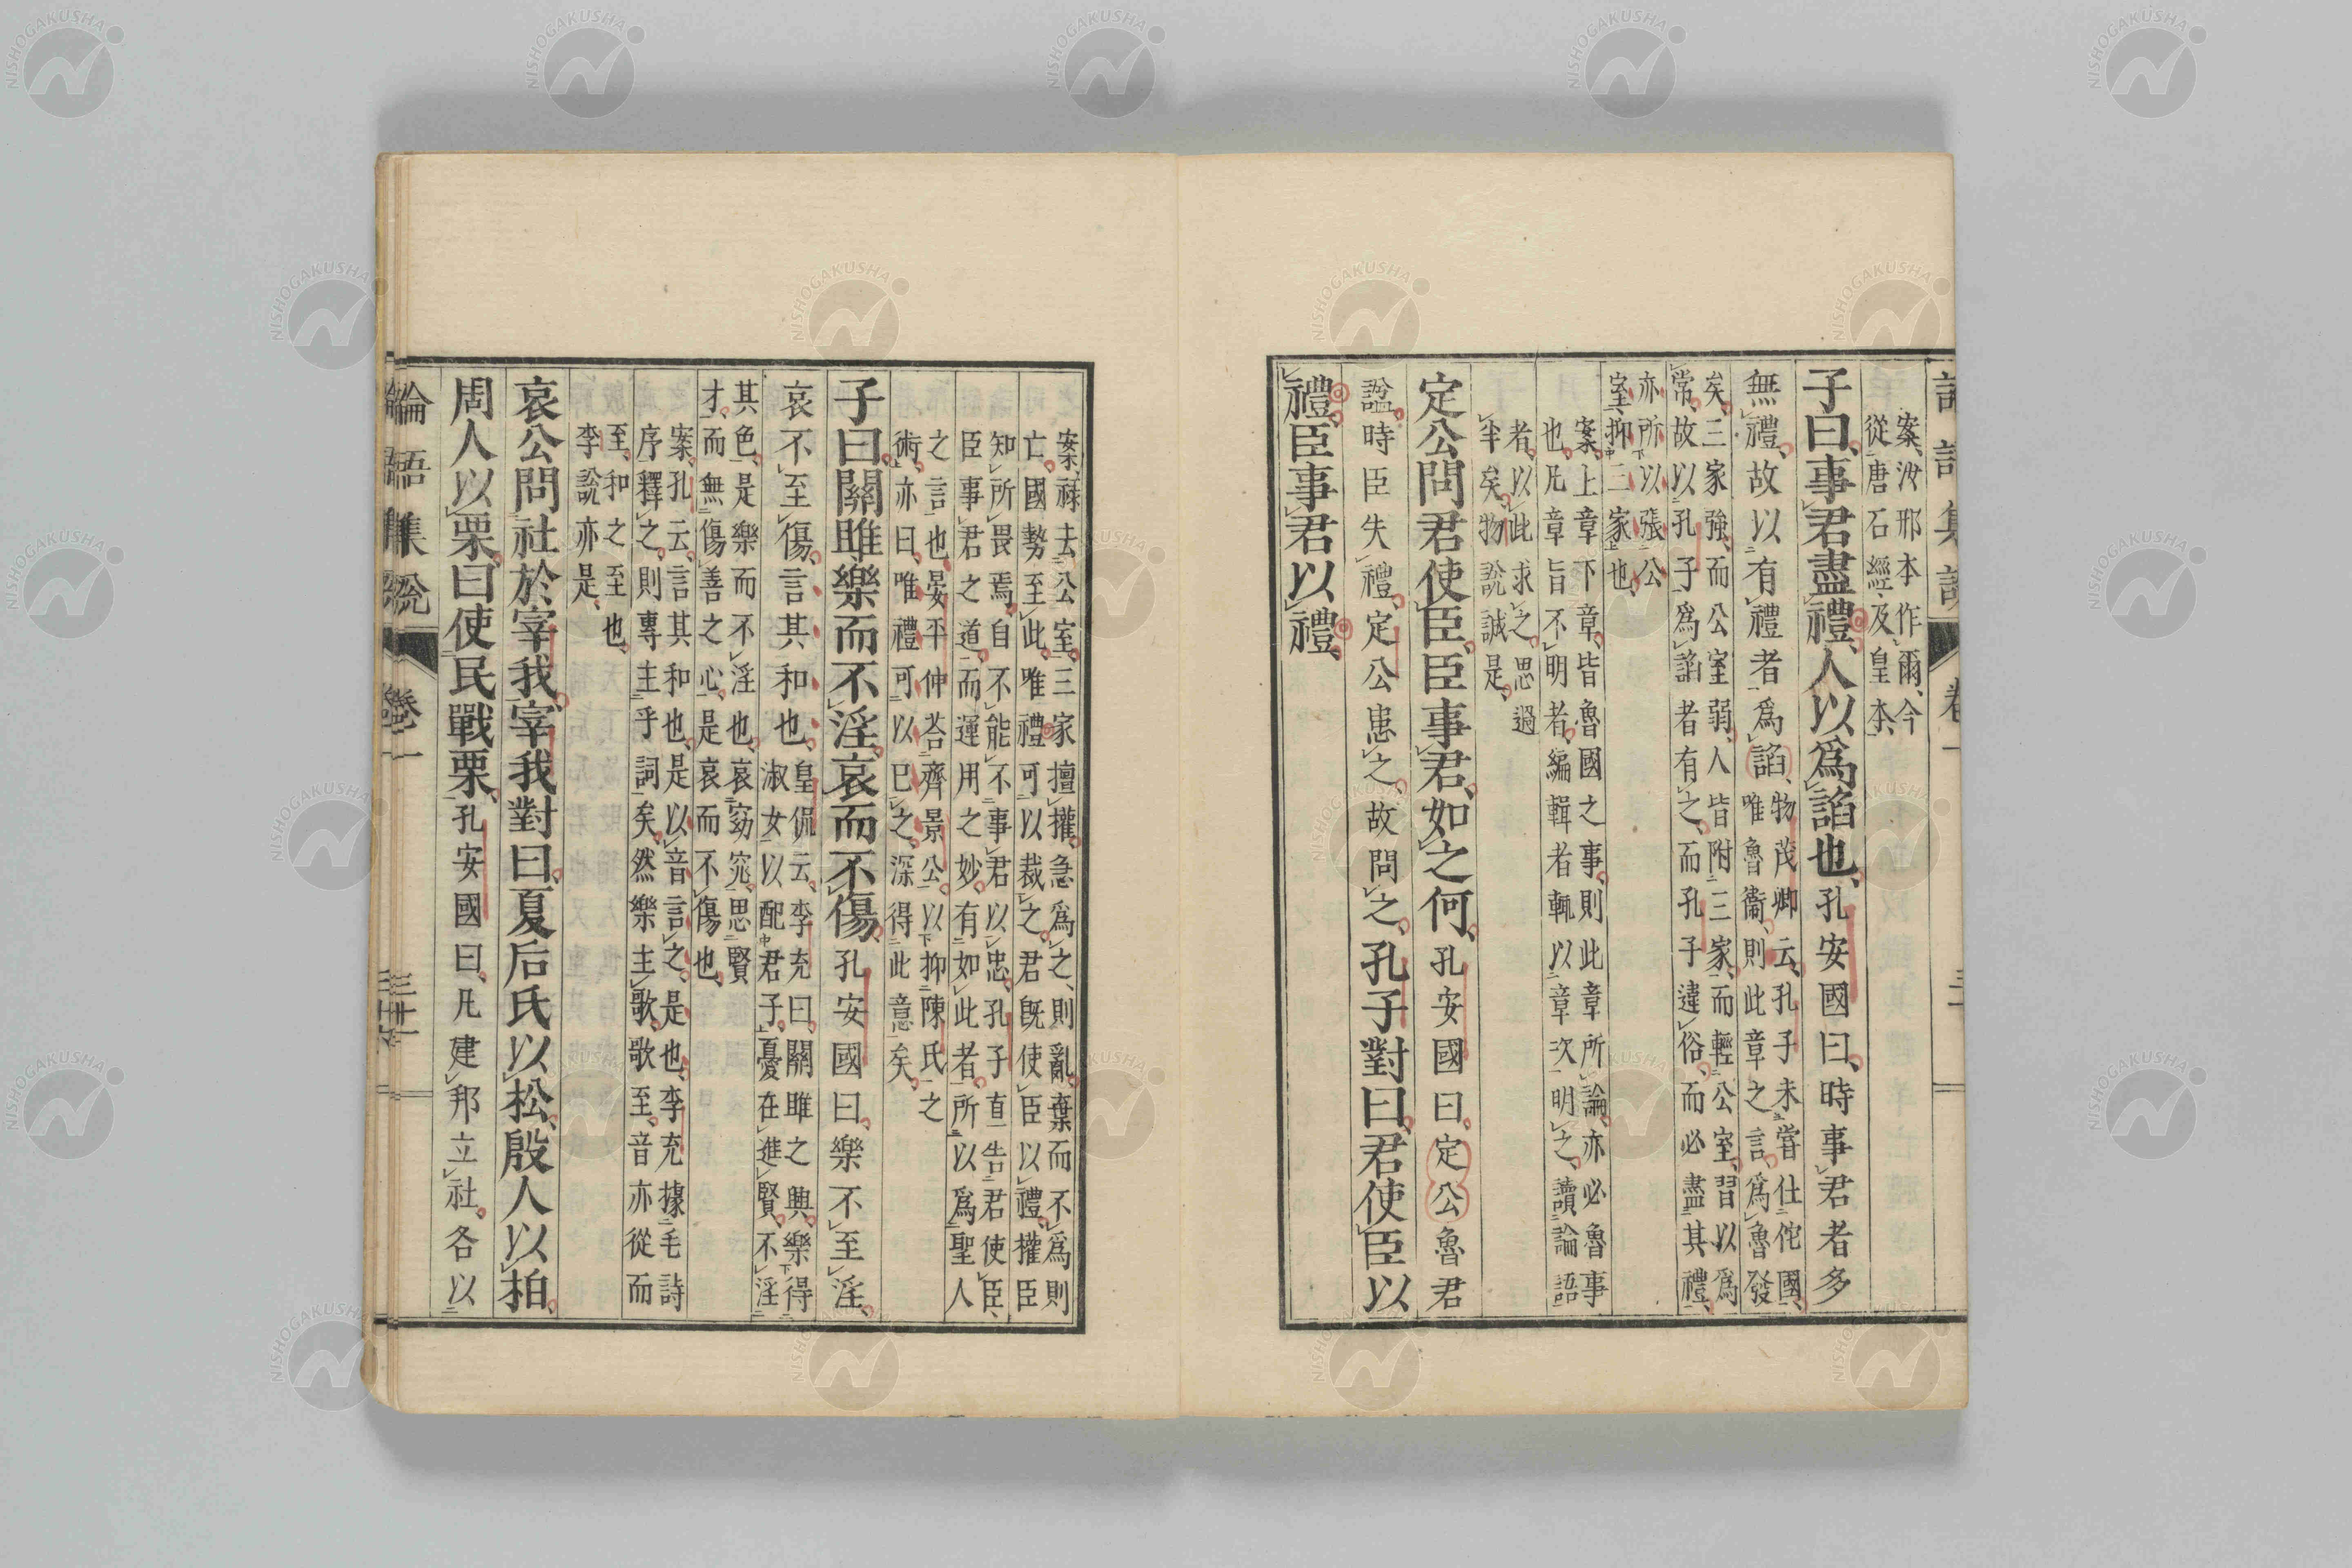 案、汝邢本作爾、今
從唐石經、及皇本、
子曰、事君盡禮、人以爲諂也、孔安國曰、時事君者多
無禮、故以有禮者爲諂、物茂卿云、孔子未嘗仕佗國、
唯魯衞、則此章之言、爲魯發
矣、三家強、而公室弱、人皆附三家、而輕公室、習以爲
常、故以孔子爲諂者有之、而孔子違俗、而必盡其禮、
亦所以張公
室、抑三家也、
案、上章下章、皆魯國之事、則此章所論、亦必魯事
也、凡章旨不明者、編輯者輒以章次明之、讀論語
者、以此求之、思過
半矣、物說誠是、
定公問君使臣、臣事君、如之何、孔安國曰、定公魯君
諡、時臣失禮、定公患之、故問之、孔子對曰、君使臣以
禮、臣事君以禮、
案、祿去公室、三家擅權、急爲之、則亂、棄而不爲則
亡、國勢至此、唯禮可以裁之、君旣使臣以禮、權臣
知所畏焉、自不能不事君以忠、孔子直告君使臣、
臣事君之道、而運用之妙、有如此者、所以爲聖人
之言也、晏平仲荅齊景公、以抑陳氏之
術、亦曰、唯禮可以已之、深得此意矣、
子曰、關雎、樂而不淫、哀而不傷、孔安國曰、樂不至淫、
哀不至傷、言其和也、皇侃云、李充曰、關雎之興、樂得
淑女以配君子、憂在進賢、不淫
其色、是樂而不淫也、哀窈窕、思賢
才、而無傷善之心、是哀而不傷也、
案、孔云、言其和也、是以音言之、是也、李充據毛詩
序釋之、則專主乎詞矣、然樂主歌、歌至、音亦從而
至、和之至也、
李說亦是、
哀公問社於宰我、宰我對曰、夏后氏以松、殷人以柏、
周人以栗、曰使民戰栗、孔安國曰、凡建邦立社、各以
論語集說 卷一